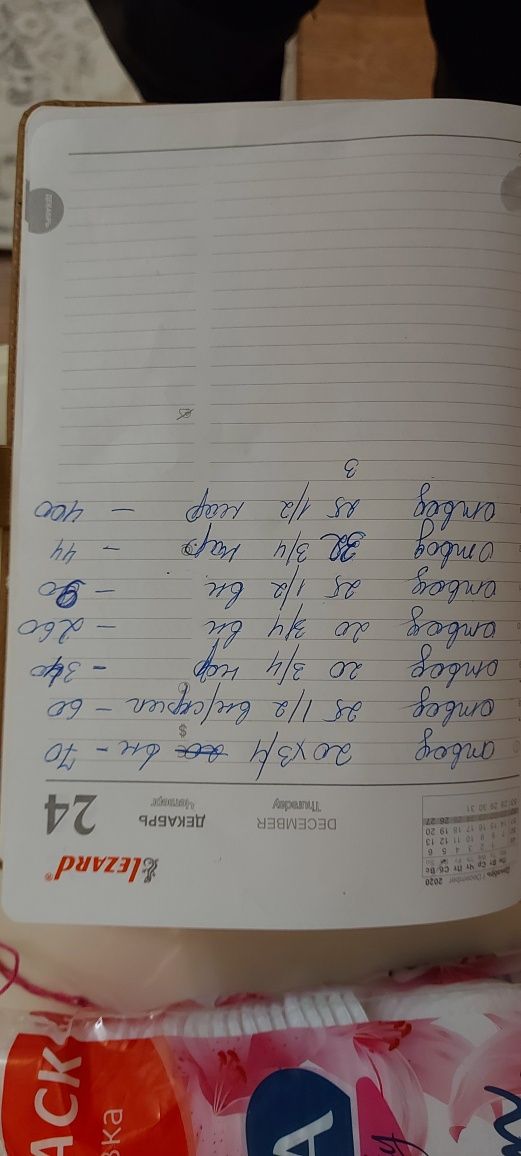 LEZARD®
Декабрь / December 2020
24
ДЕКАБРЬ
Четверг
DECEMBER
Thursday
отвод 20 х 3/4 вн - 70
отвод 25 1/2 вн/ - 60
отвод 20 3/4 нар -
отвод 20 3/4 вн - 260
отвод 25 1/2 вн -
отвод 32 3/4 нар - 44
отвод 25 1/2 нар - 400
3
АСК
вка
А